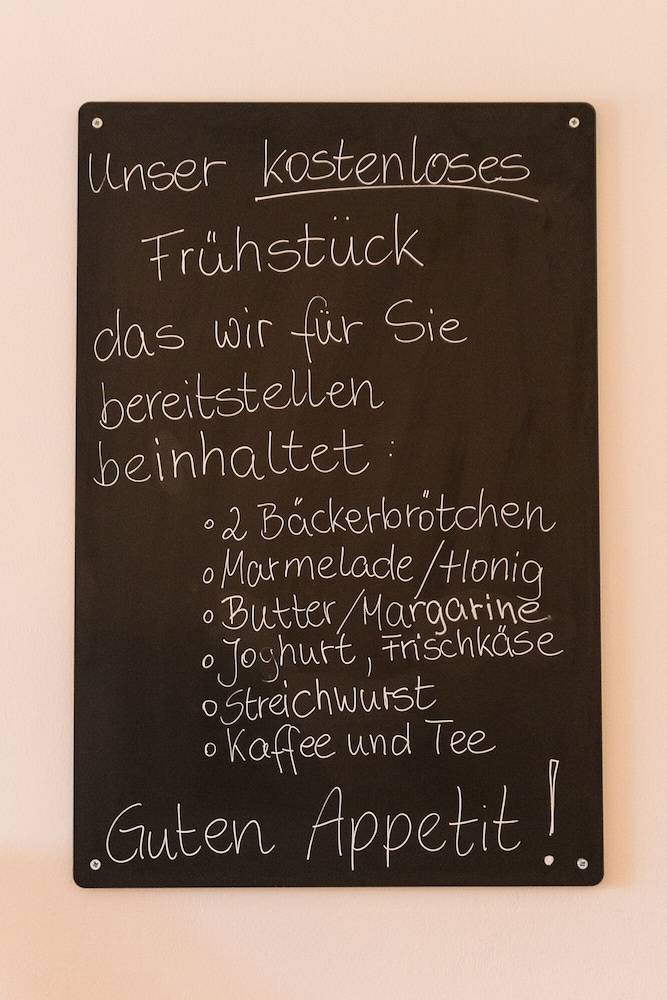 Unser kostenloses
Frühstück
das wir für Sie
bereitstellen
beinhaltet:
◦ 2 Bäckerbrötchen
◦ Marmelade/Honig
◦ Butter/Margarine
◦ Joghurt, Frischkäse
◦ Streichwurst
◦ Kaffee und Tee
Guten Appetit!